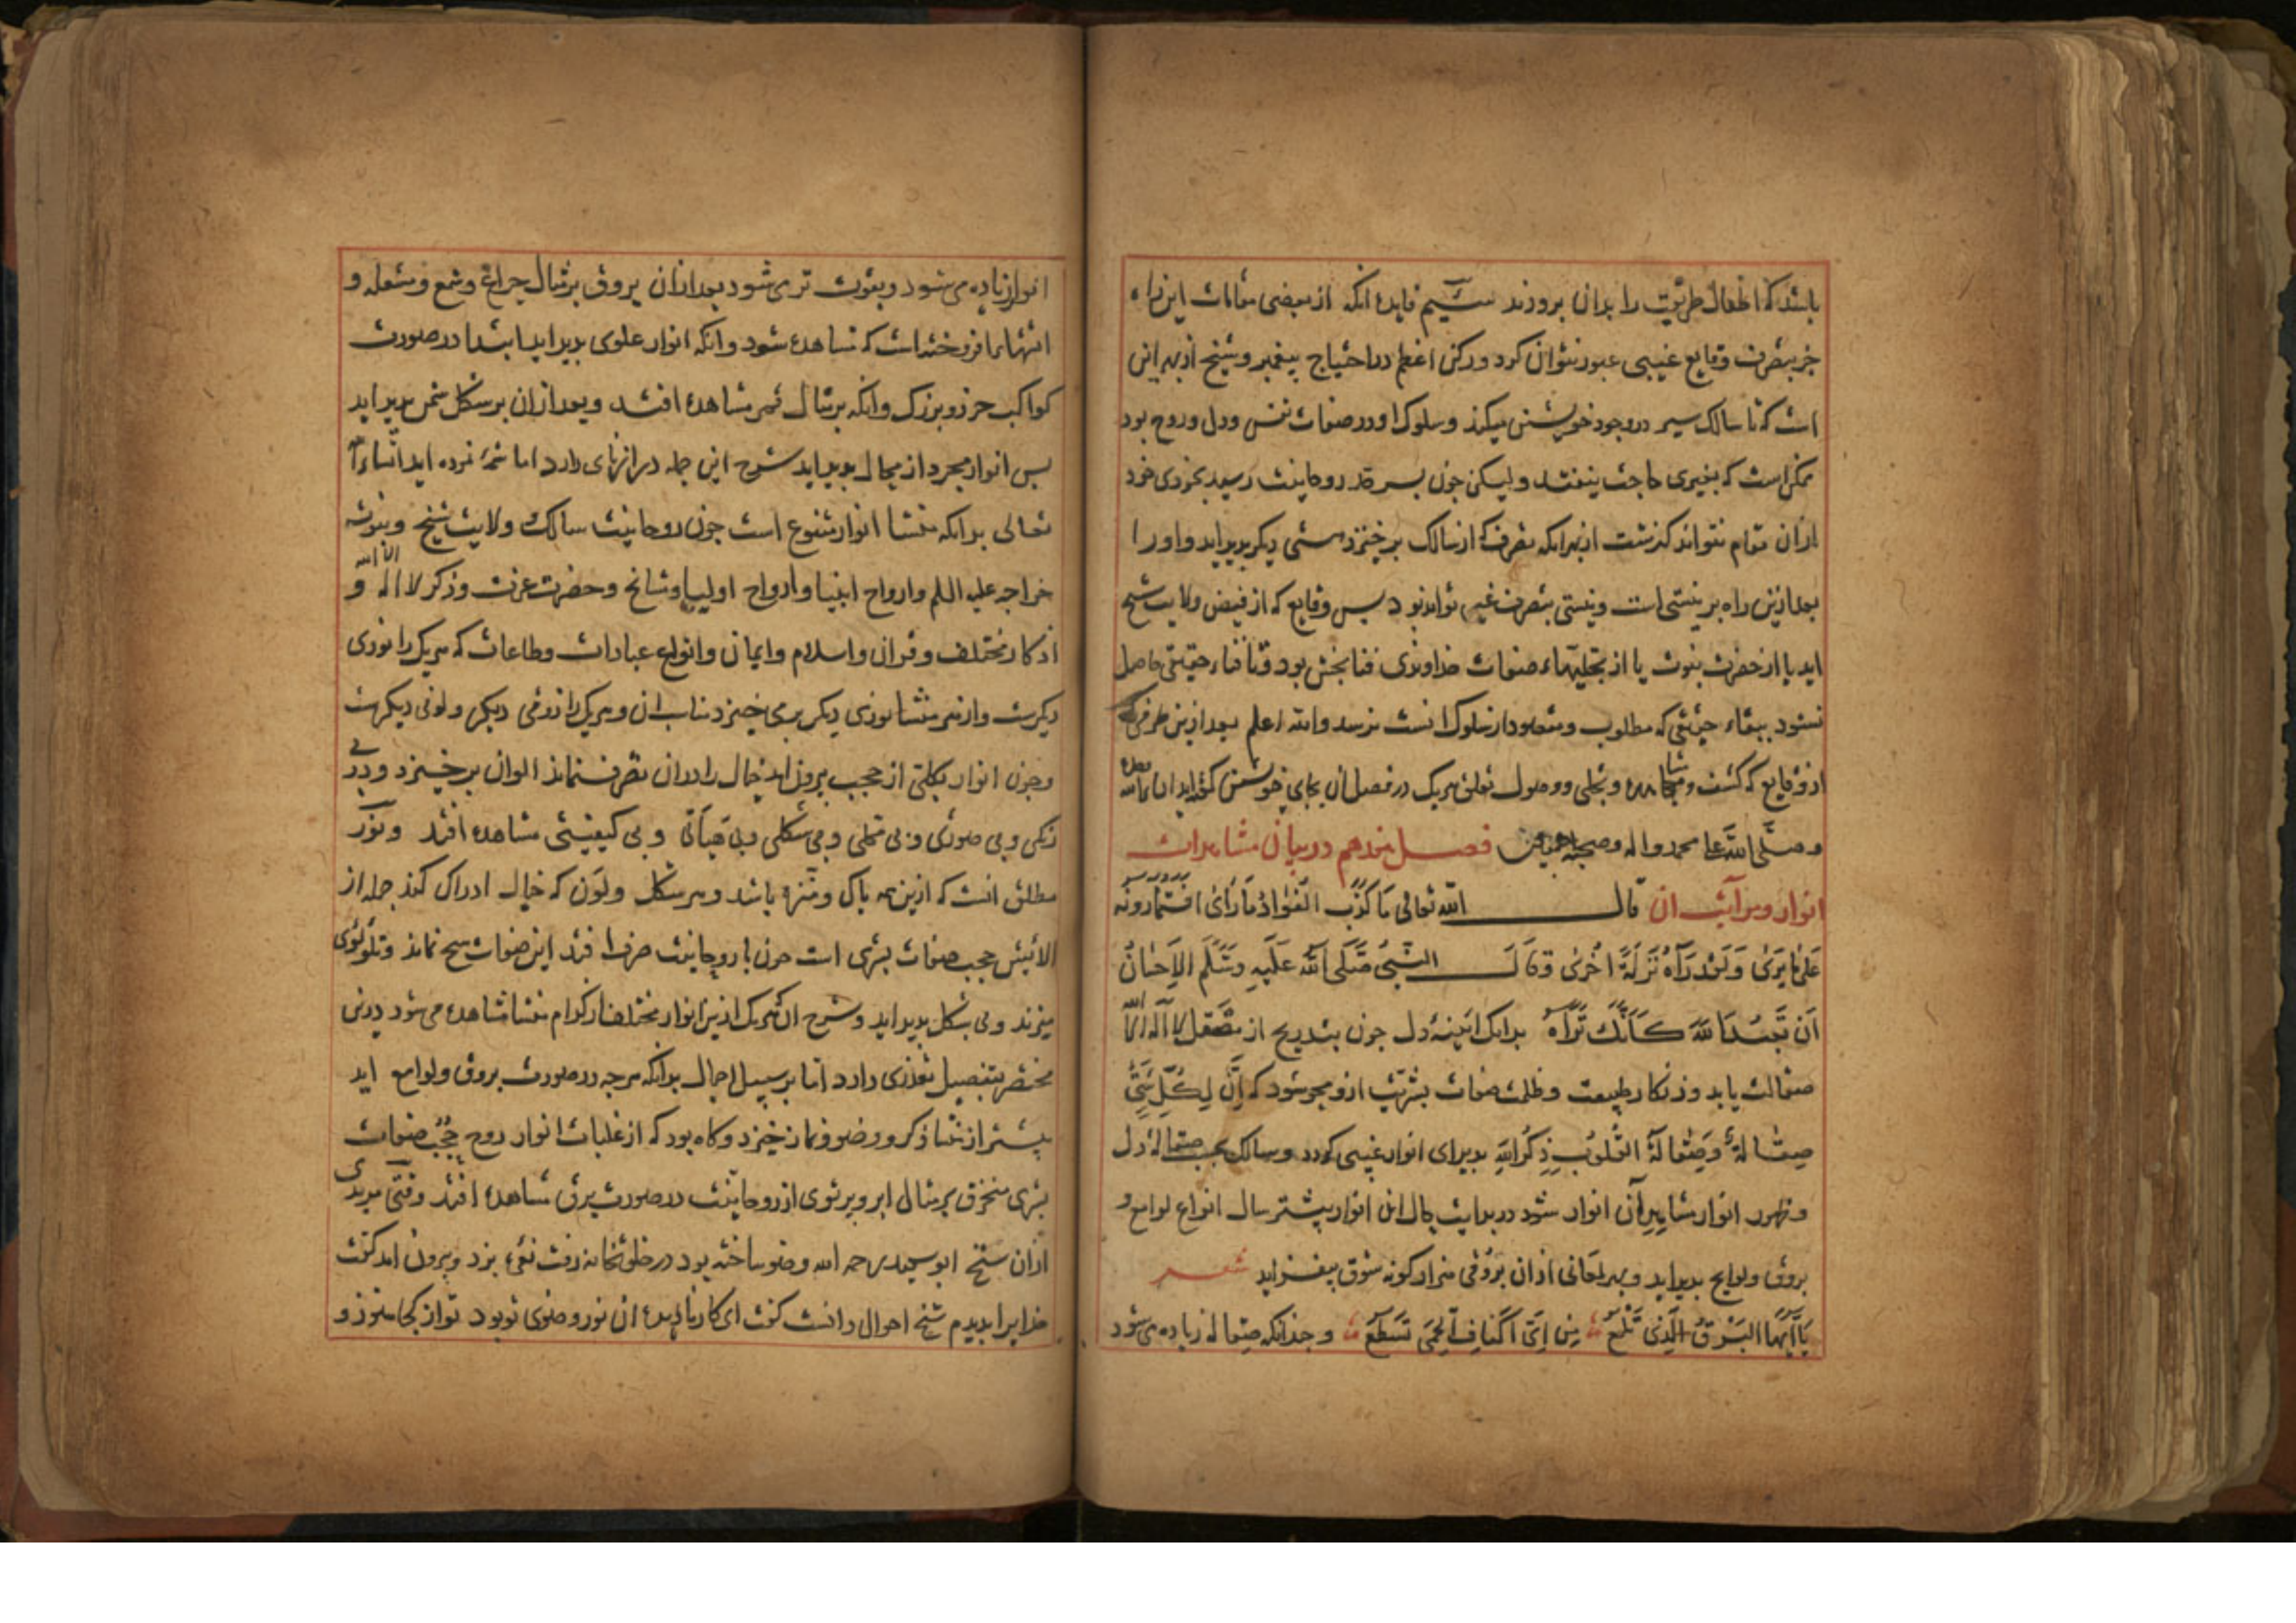 باشد که اطفال طریقت را بدان پرورند سیم فایده انکه از بعضی مقامات این راه
جز بتصرف وقایع غیبی عبور نتوان کرد و رکن اعظم در احتیاج پیغمبر و شیخ از بهر این
است که تا سالک سیر در وجود خویشتن میکند و سلوک او در صفات نفس و دل و روح بود
ممکن است که بغیری حاجت نیفتد ولیکن چون بسرحد روحانیت رسید بخودی خود
ازان مقام نتواند گذشت از بهر انکه تصرف که از سالک برخیزد هستی دیگر پدید اید و او را
بعد ازین راه بر نیستی است و نیستی بتصرف غیر تواند بود پس وقایع که از فیض ولایت شیخ
اید یا از حضرت نبوت یا از تجلیهاء صفات خداوندی فنا بخش بود و تا فناء حقیقی حاصل
نشود ببقاء حقیقی که مطلوب و مقصود از سلوک انست نرسد والله اعلم بعد ازین طرفی
از وقایع که کشف و مشاهده و تجلی و وصول تعلق هریک در فصل ان بجای خویشتن گفته اید ان شاالله
و صلی الله علی محمد و اله و صحبه اجمعین فصل هژدهم در بیان مشاهدات
انوار و مراتب ان قال الله تعالی مَا کَذَبَ الْفُؤَادُ مَا رَأَیٰ اَفَتُمَارُونَهُ
عَلَیٰ مَا یَرَیٰ وَلَقَدْ رَآهُ نَزْلَةً اُخْرَیٰ وَقَالَ النَّبِیُّ صَلَّی اللّٰهُ عَلَیْهِ وَسَلَّمَ الاِحْسَانُ
اَن تَعْبُدَ اللّٰهَ کَاَنَّکَ تَرَاهُ بدانک اینهٔ دل چون بتدریج از مصقل لا اله الا الله
صقالت یابد و زنکار طبیعت و ظلمت صفات بشریت ازو محو شود که اِنَّ لِکُلِّ شَیْءٍ
صِقَالَةً وَصِقَالَةُ الْقُلُوبِ ذِکْرُ اللّٰهِ پذیرای انوار غیبی گردد و سالک بحسب صقالهٔ دل
و ظهور انوار مشاهد آن انوار شود در بدایت حال این انوار بیشتر مثال انواع لوامع و
بروق و لوایح پدید اید و بهر لمعانی ازان بروقی هزار گونه شوق بیفزاید شعر
یَا اَیُّهَا الْبَرْقُ الَّذِی تَلْمَعُ مِن اَیِّ اَکْنَافِ الْحِمَی تَسْطَعُ و چندانکه صقاله زیاده می شود
انوار زیاده می شود و بقوت تر می شود بعد ازان بروق بر مثال چراغ و شمع و مشعله و
اتشها برافروخته است که مشاهده شود وانکه انوار علوی پدید اید ابتدا در صورت
کواکب خرد و بزرگ وانکه بر مثال قمر مشاهده افتد و بعد ازان بر شکل شمس پدید اید
پس انوار مجرد از محال پدید اید شرح این جمله درازنای دارد اما شمهٔ نموده اید انشاءالله
تعالی بدانکه منشا انوار متنوع است چون روحانیت سالک و ولایت شیخ و نبوت
خواجه علیه السلم و ارواح انبیا و ارواح اولیا و مشایخ و حضرت عزت و ذکر لا اله الا الله و
اذکار مختلف و قران و اسلام و ایمان و انواع عبادات و طاعات که هریک را نوری
دیکرست و از هر منشا نوری دیگر برمی خیزد مناسب ان و هریک را ذوقی دیکر و لونی دیکرست
و چون انوار بکلی از حجب بیرون اید خیال را در ان تصرف نماند الوان برخیزد و در بی
رنکی و بی صورتی و بی محلی و بی شکلی و بی هیاتی و بی کیفیتی مشاهده افتد و نور
مطلق انست که ازین همه پاک و منزه باشد و هر شکل و لون که خیال ادراک کند جمله از
الایش حجب صفات بشری است چون با روحانیت صرف افتد این صفات هیچ نماند و تلؤلؤی
میزند و بی شکل پدید اید و شرح ان که هریک ازین انوار مختلف از کدام منشا مشاهده می شود درین
مختصر بتفصیل تعذری دارد اما بر سبیل اجمال بدانکه هرچه در صورت بروق و لوامع اید
بیشتر از منشا ذکر و وضو و نماز خیزد و کاه بود که از غلبات انوار روح حُجُب صفات
بشری منخرق بر مثال ابر و پرتوی از روحانیت در صورت برق مشاهده افتد وقتی مریدی
ازان شیخ ابو سعید رحمه الله وضو ساخته بود در خلوتخانه رفت نعره بزد و بیرون امد گفت
خدایرا بدیدم شیخ احوال دانست گفت ای کار نادیده ان نور وضوی تو بود تو از کجا هنوز و